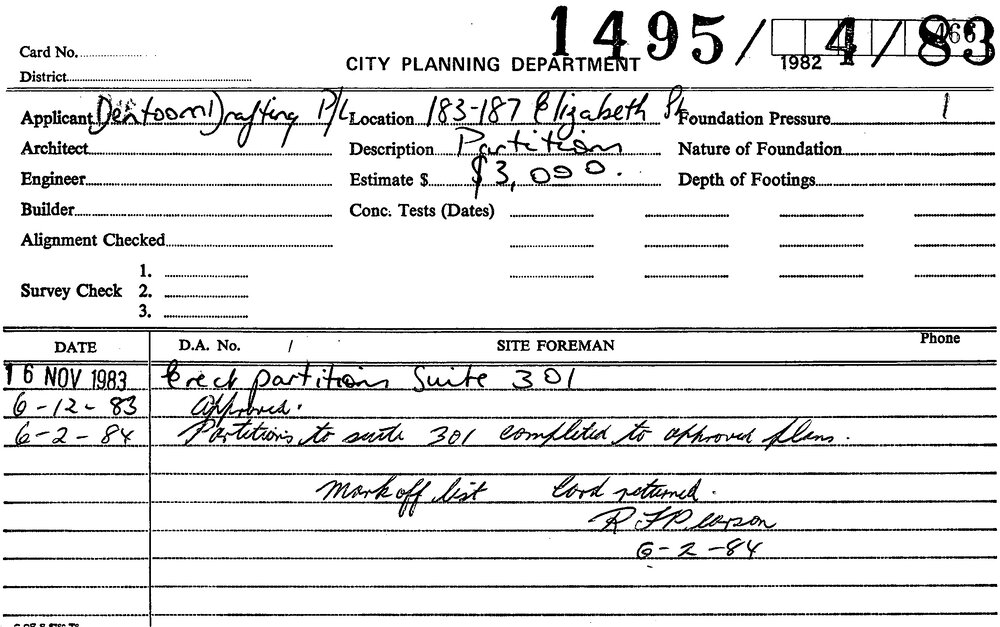 1495/4/83
466
Card No.
1982
CITY PLANNING DEPARTMENT
District
Applicant Drafting P/L Location 183-187 Elizabeth St Foundation Pressure 1
Architect Description Partition Nature of Foundation
Engineer Estimate $ $3,000. Depth of Footings
Builder Conc. Tests (Dates)
Alignment Checked
1.
Survey Check 2.
3.
DATE D.A. No. / SITE FOREMAN Phone
16 NOV 1983 Erect partitions Suite 301
6-12-83 Approved.
6-2-84 Partitions to suite 301 completed to approved plans.
Mark off list Card returned.
R F Pearson
6-2-84